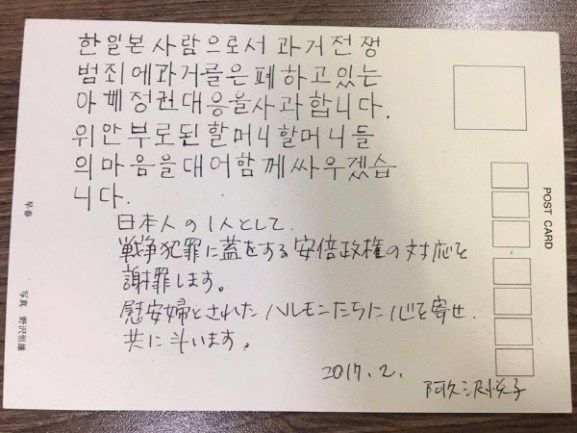 한일본사람으로서 과거전쟁
범죄에과거를은폐하고있는
아베정권대응을사과합니다.
위안부로된할머니할머니들
의마음을대어함께싸우겠습
니다.
日本人の1人として.
戦争犯罪に蓋をする安倍政権の対応を
謝罪します。
慰安婦とされたハルモニたちに心を寄せ
共に斗います。
2017.2.
阿久沢悦子
POST CARD
早春
写真